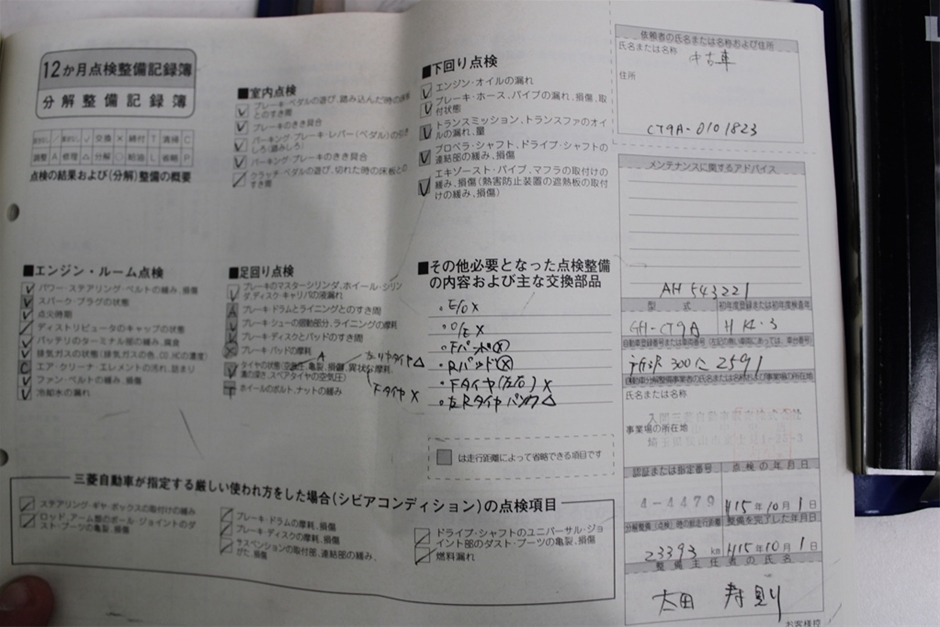 12か月点検整備記録簿
分解整備記録簿
交換 × 締付 T 清掃 C
調整 A 修理 △ 分解 ○ 給油 L 省略 P
点検の結果および(分解)整備の概要
■エンジン・ルーム点検
パワー・ステアリング・ベルトの緩み、損傷
スパーク・プラグの状態
点火時期
ディストリビュータのキャップの状態
バッテリのターミナル部の緩み、腐食
排気ガスの状態(排気ガスの色、CO、HCの濃度)
エア・クリーナ・エレメントの汚れ、詰まり
ファン・ベルトの緩み、損傷
冷却水の漏れ
■室内点検
ブレーキ・ペダルの遊び、踏み込んだ時の床板とのすき間
ブレーキのきき具合
パーキング・ブレーキ・レバー(ペダル)の引きしろ(踏みしろ)
パーキング・ブレーキのきき具合
クラッチ・ペダルの遊び、切れた時の床板とのすき間
■足回り点検
ブレーキのマスターシリンダ、ホイール・シリンダ、ディスク・キャリパの液漏れ
ブレーキ・ドラムとライニングとのすき間
ブレーキ・シューの摺動部分、ライニングの摩耗
ブレーキ・ディスクとパッドのすき間
ブレーキ・パッドの摩耗
タイヤの状態(空気圧、亀裂、損傷、異状な摩耗、
溝の深さ、スペアタイヤの空気圧)
ホイールのボルト、ナットの緩み
A
左リヤタイヤ△
FタイヤX
■下回り点検
エンジン・オイルの漏れ
ブレーキ・ホース、パイプの漏れ、損傷、取
付状態
トランスミッション、トランスファのオイ
ルの漏れ、量
プロペラ・シャフト、ドライブ・シャフトの
連結部の緩み、損傷
エキゾースト・パイプ、マフラの取付けの
緩み、損傷(熱害防止装置の遮熱板の取付
けの緩み、損傷)
■その他必要となった点検整備
の内容および主な交換部品
・E/O X
・O/E X
・Fパッド Ⓧ
・Rパッド Ⓧ
・Fタイヤ(左右) X
・左Rタイヤ パンク△
は走行距離によって省略できる項目です
三菱自動車が指定する厳しい使われ方をした場合(シビアコンディション)の点検項目
ステアリング・ギヤ・ボックスの取付けの緩み
ロッド、アーム類のボール・ジョイントのダ
スト・ブーツの亀裂、損傷
ブレーキ・ドラムの摩耗、損傷
ブレーキ・ディスクの摩耗、損傷
サスペンションの取付部、連結部の緩み、
がた、損傷
ドライブ・シャフトのユニバーサル・ジョ
イント部のダスト・ブーツの亀裂、損傷
燃料漏れ
依頼者の氏名または名称および住所
氏名または名称
中古車
住所
CT9A-0101823
メンテナンスに関するアドバイス
AH 543221
型式 初年度登録または初年度検査年
GH-CT9A H14・3
所沢 300 に 2591
氏名または名称
事業場の所在地
認証または指定番号 点検の年月日
4-4479 H15年10月1日
分解整備(点検)時の総走行距離 整備を完了した年月日
23393 km H15年10月1日
整備主任者の氏名
太田 寿則
お客様控